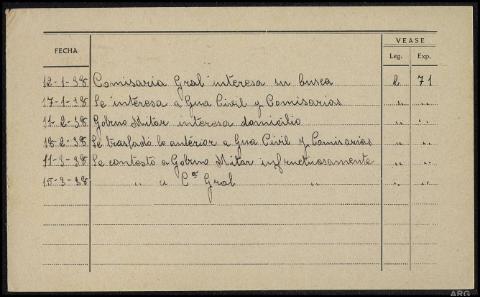 VEASE
FECHA Leg. Exp.
12-1-38 Comisaria Gral interesa su busca 2 71
17-1-38 Se interesa a Gua Civil y Comisarias " "
11-2-38 Gobrno Militar interesa domicilio " "
18-2-38 Se trasladó lo anterior a Gua Civil y Comisarias " "
11-3-38 Se contestó a Gobrno Mitar infructuosamente " "
15-3-38 " a Cª Gral " " "
ARG